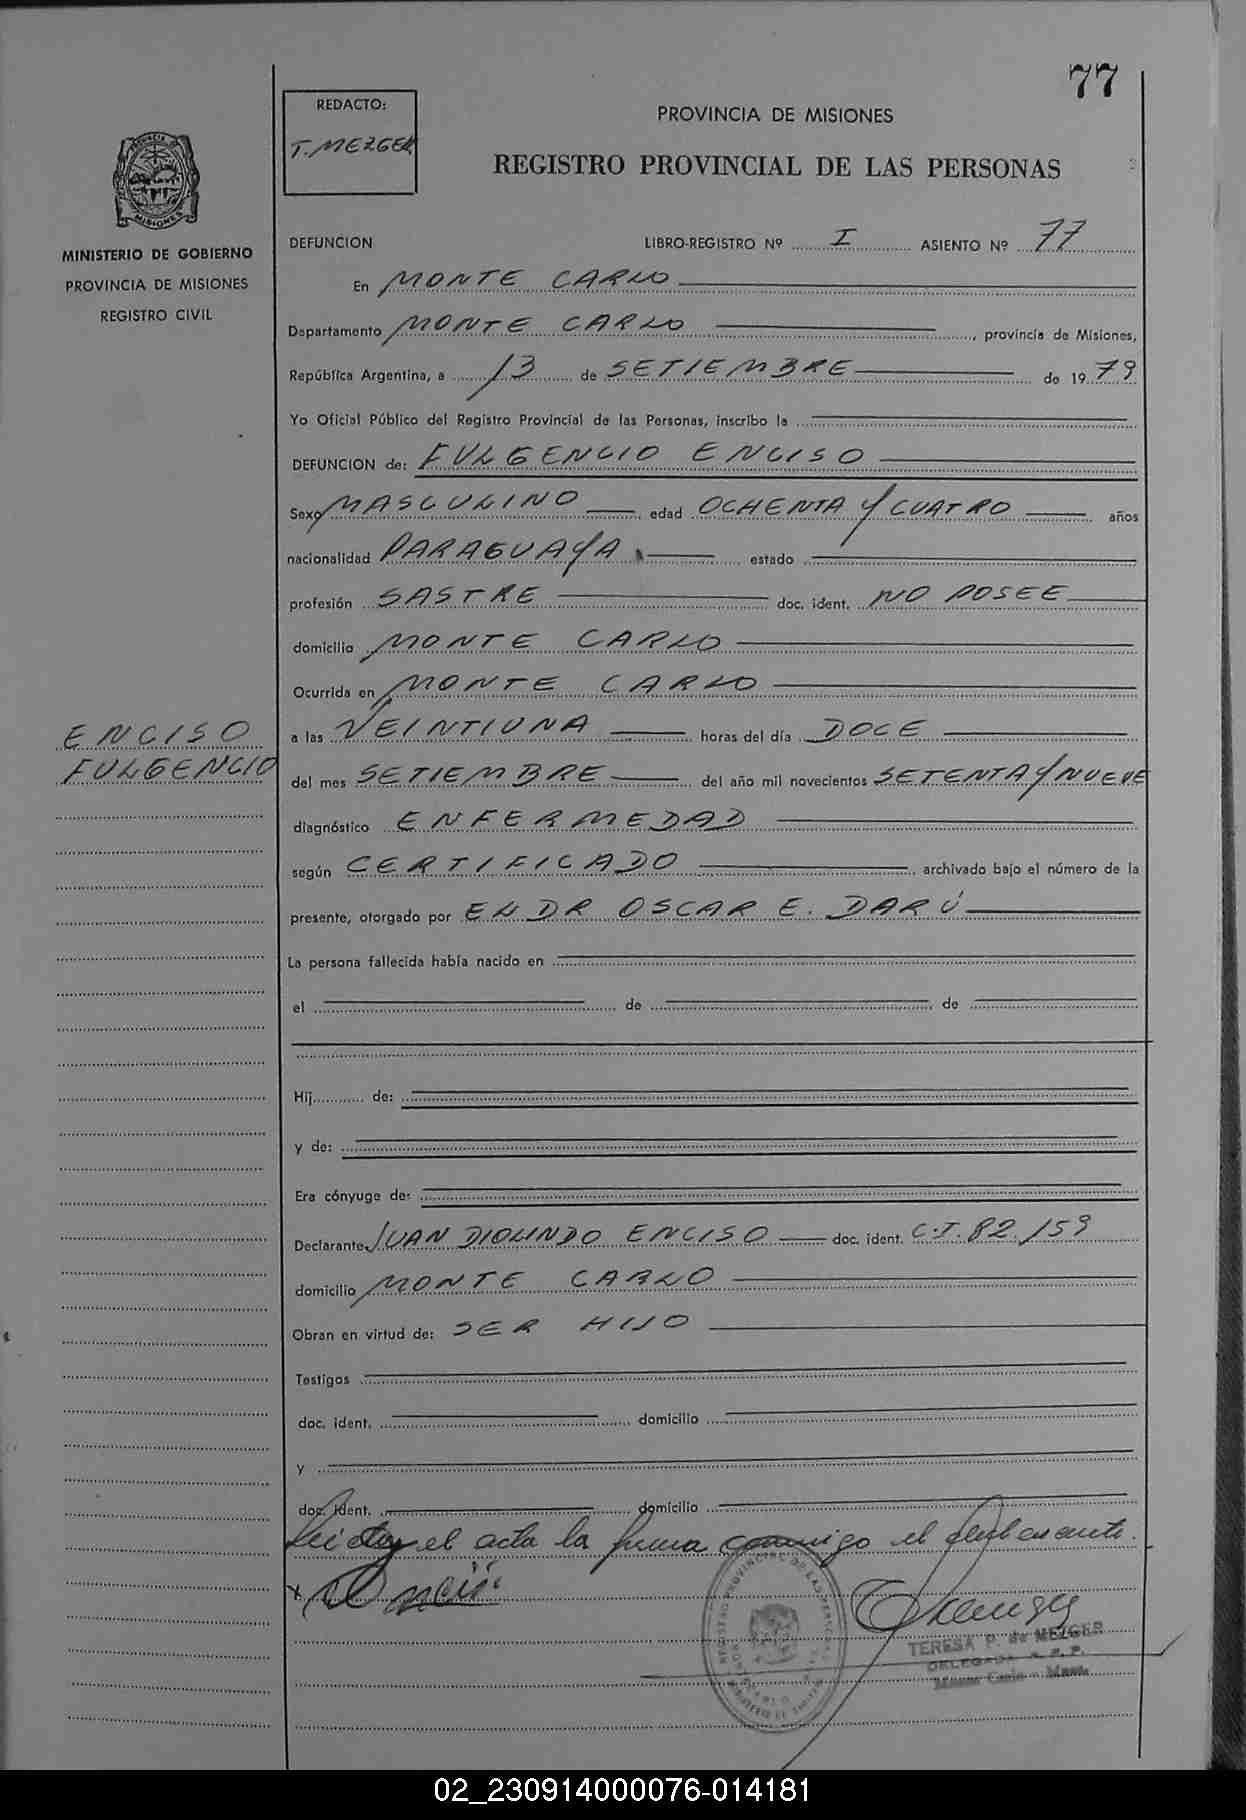 77
REDACTO:
T. MEZGER
PROVINCIA DE MISIONES
REGISTRO PROVINCIAL DE LAS PERSONAS
MISIONES
MINISTERIO DE GOBIERNO
PROVINCIA DE MISIONES
REGISTRO CIVIL
DEFUNCION LIBRO-REGISTRO Nº I ASIENTO Nº 77
En MONTE CARLO
Departamento MONTE CARLO, provincia de Misiones,
República Argentina, a 13 de SETIEMBRE de 1979
Yo Oficial Público del Registro Provincial de las Personas, inscribo la
DEFUNCION de: FULGENCIO ENCISO
Sexo MASCULINO edad OCHENTA Y CUATRO años
nacionalidad PARAGUAYA estado
profesión SASTRE doc. ident. NO POSEE
domicilio MONTE CARLO
Ocurrida en MONTE CARLO
ENCISO
FULGENCIO
a las VEINTIUNA horas del día DOCE
del mes SETIEMBRE del año mil novecientos SETENTA Y NUEVE
diagnóstico ENFERMEDAD
según CERTIFICADO, archivado bajo el número de la
presente, otorgado por EL DR OSCAR E. DARÚ
La persona fallecida había nacido en
el de de
Hij de:
y de:
Era cónyuge de:
Declarante JUAN DIOLINDO ENCISO doc. ident. C.I. 82.159
domicilio MONTE CARLO
Obran en virtud de: SER HIJO
Testigos
doc. ident. domicilio
y
doc. ident. domicilio
el acta la firma conmigo el
TERESA P. de MEZGER
DELEGADA R. P. P.
02_230914000076-014181